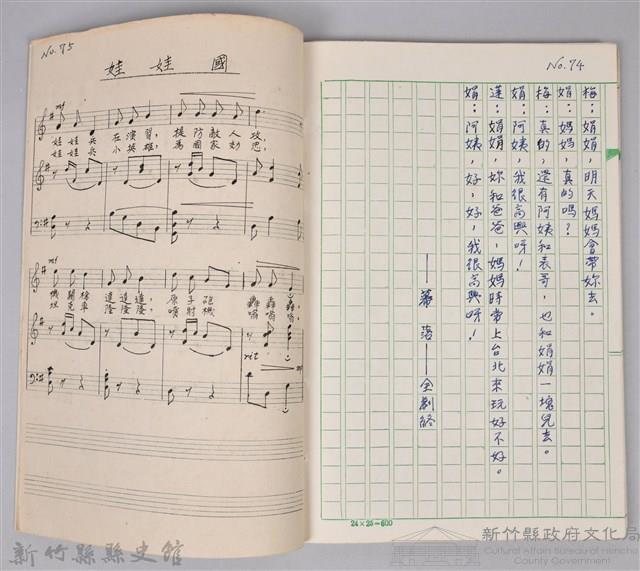 No. 74
梅：娟娟，明天媽媽會帶妳去。
娟：媽媽，真的嗎？
梅：真的，還有阿姨和表哥，也和娟娟一塊兒去。
娟：阿姨，我很高興呀！
蓮：娟娟，妳和爸爸，媽媽時常上台北來玩好不好。
娟：阿姨，好，好，我很高興呀！
——幕 落——全劇終
24×25=600
No. 75
娃 娃 國
mf
娃娃兵 在演習，提防敵人攻，
娃娃兵 小英雄，為國家
mf
機關槍 達達達， 原子砲 轟轟，
坦克車 隆隆隆， 噴射機 嗡嗡，
rit
新竹縣縣史館
新竹縣政府文化局
Cultural Affairs Bureau of Hsinchu
County Government